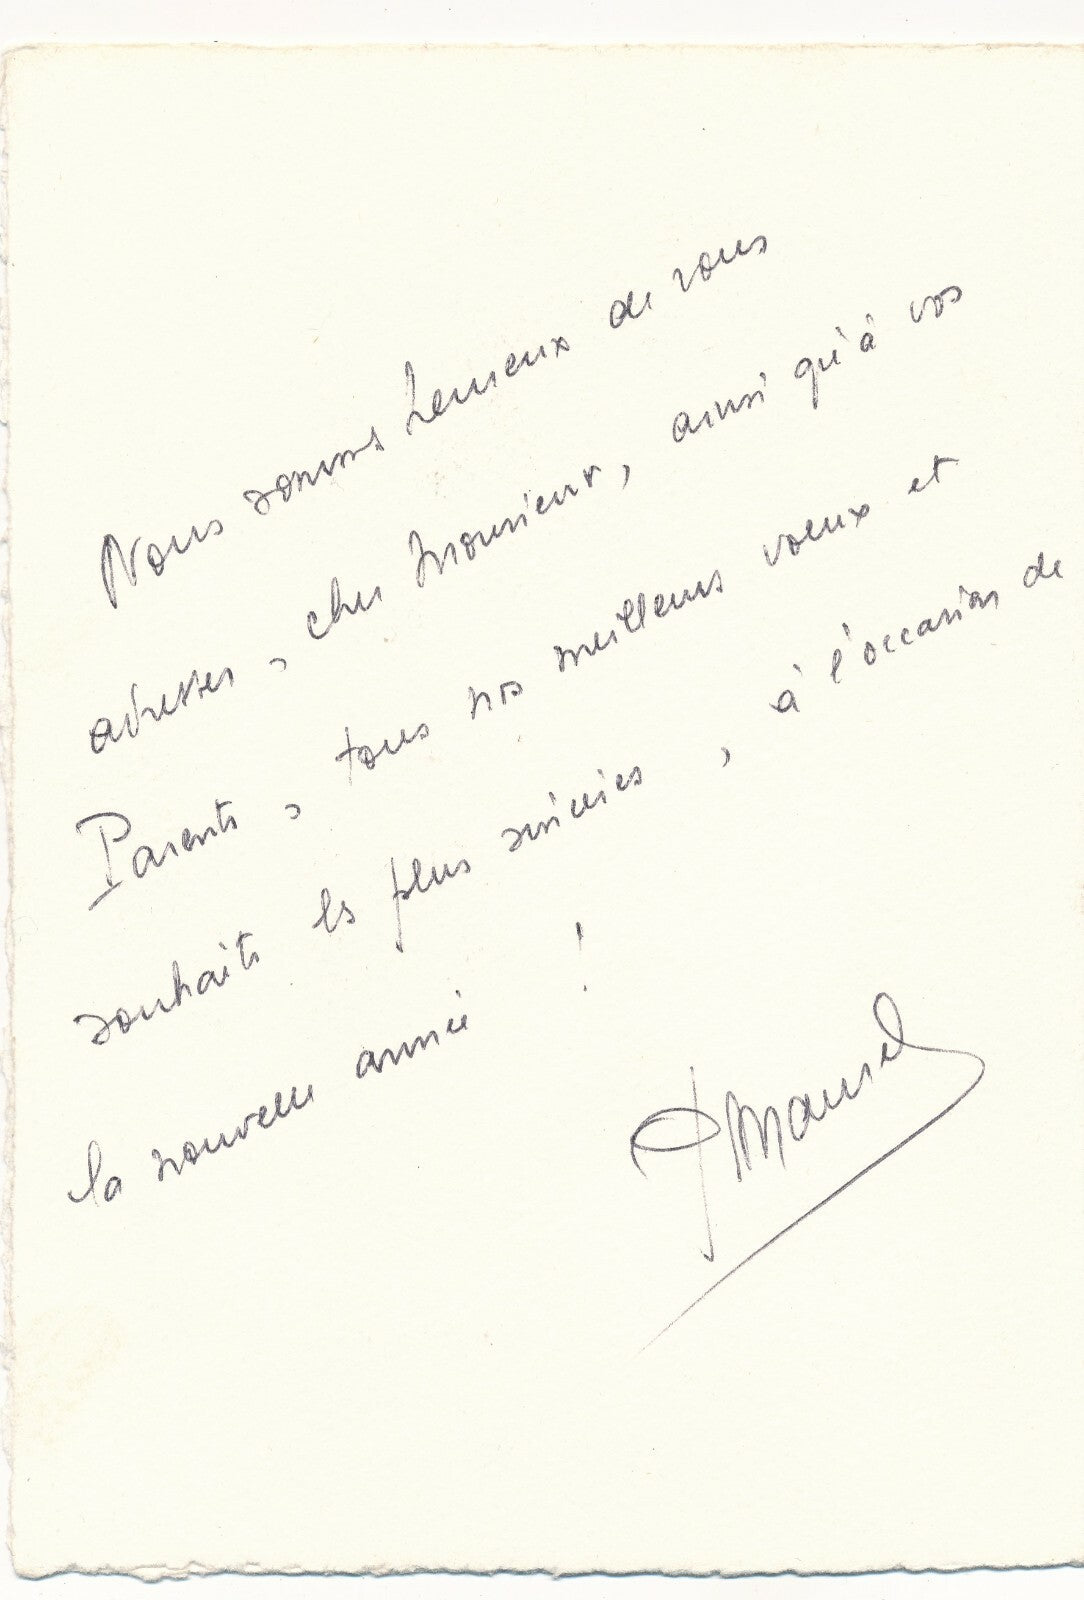 Nous sommes heureux de vous
adresser, cher Monsieur, ainsi qu'à vos
Parents, tous nos meilleurs voeux et
souhaits les plus sincères, à l'occasion de
la nouvelle année !